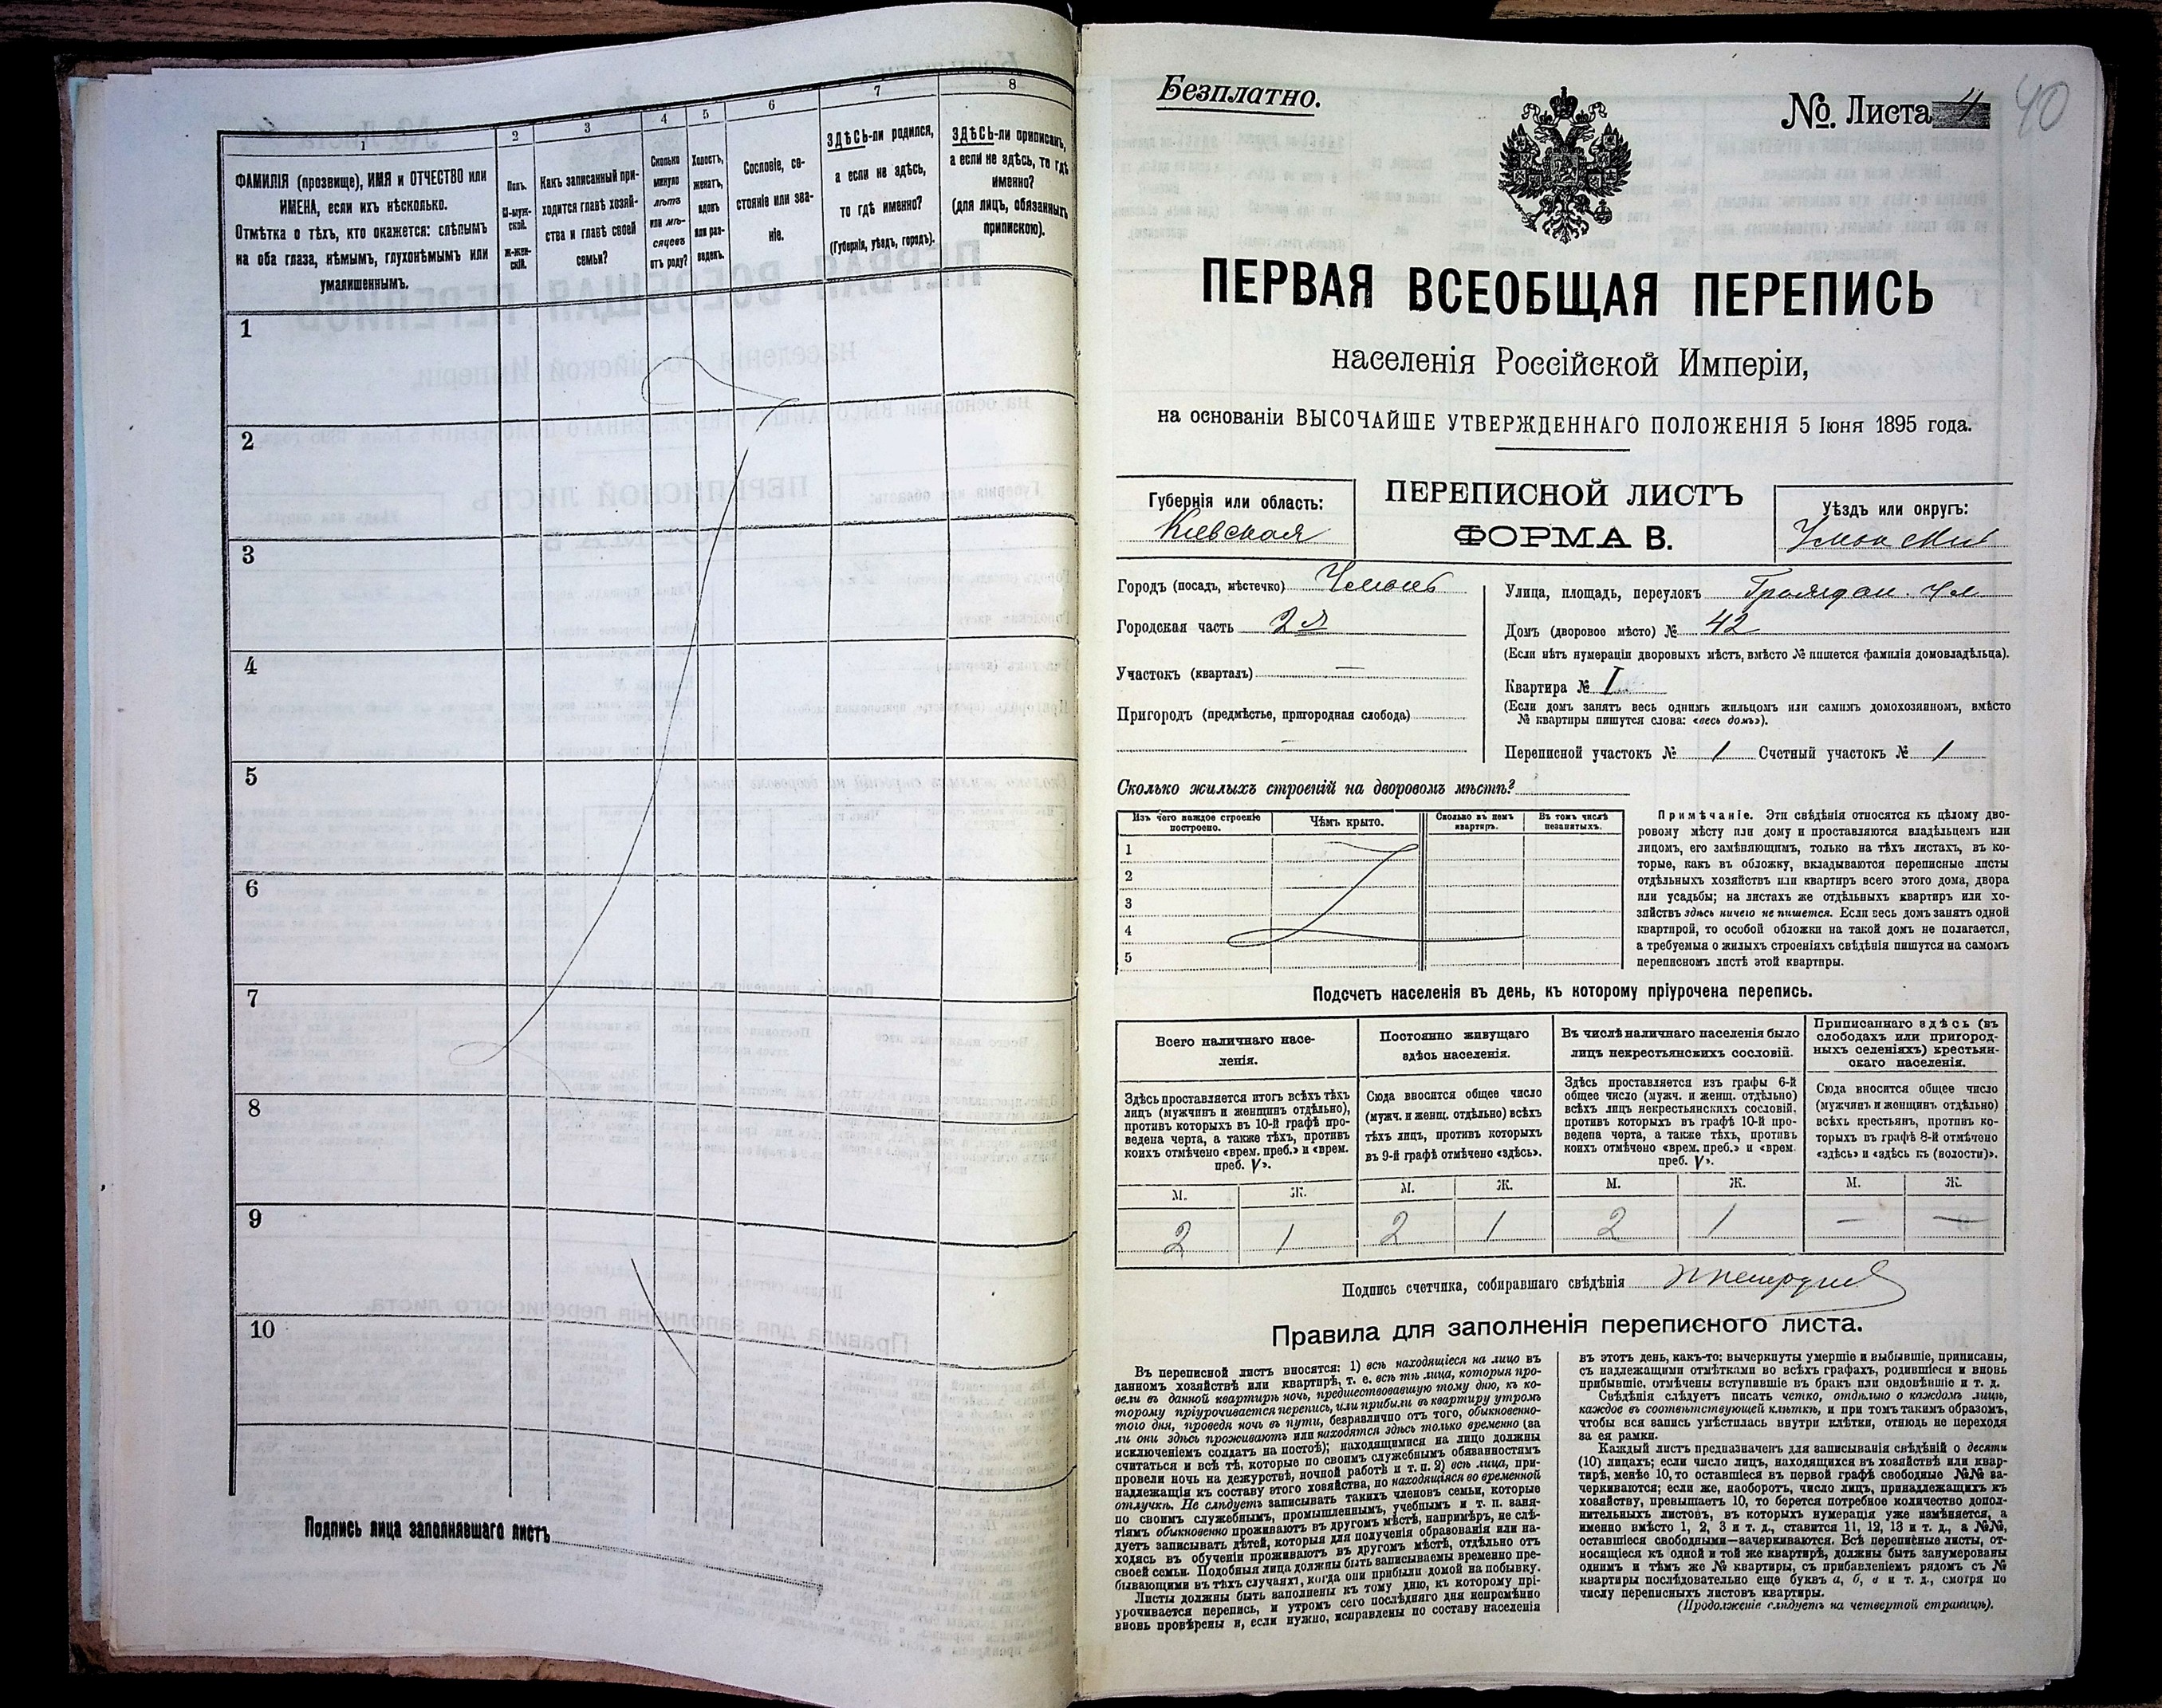 1
ФАМИЛІЯ (прозвище), ИМЯ и ОТЧЕСТВО или
ИМЕНА, если ихъ нѣсколько.
Отмѣтка о тѣхъ, кто окажется: слѣпымъ
на оба глаза, нѣмымъ, глухонѣмымъ или
умалишеннымъ.
2
Полъ.
М-муж-
ской.
Ж-жен-
скій.
3
Какъ записанный при-
ходится главѣ хозяй-
ства и главѣ своей
семьи?
4
Сколько
минуло
лѣтъ
или мѣ-
сяцевъ
отъ роду?
5
Холостъ,
женатъ,
вдовъ
или раз-
веденъ.
6
Сословіе, со-
стояніе или зва-
ніе.
7
ЗДѢСЬ-ли родился,
а если не здѣсь,
то гдѣ именно?
(Губернія, уѣздъ, городъ).
8
ЗДѢСЬ-ли приписанъ,
а если не здѣсь, то гдѣ
именно?
(для лицъ, обязанныхъ
припискою).
1
2
3
4
5
6
7
8
9
10
Подпись лица заполнявшаго листъ
Безплатно.
№. Листа 4
40
ПЕРВАЯ ВСЕОБЩАЯ ПЕРЕПИСЬ
населенія Россійской Имперіи,
на основаніи ВЫСОЧАЙШЕ УТВЕРЖДЕННАГО ПОЛОЖЕНІЯ 5 Іюня 1895 года.
Губернія или область:
Кіевская
ПЕРЕПИСНОЙ ЛИСТЪ
ФОРМА В.
Уѣздъ или округъ:
Уманскій
Городъ (посадъ, мѣстечко) Умань
Городская часть 2я
Участокъ (кварталъ) —
Пригородъ (предмѣстье, пригородная слобода)
—
Улица, площадь, переулокъ Граждан. ул
Домъ (дворовое мѣсто) № 42
(Если нѣтъ нумераціи дворовыхъ мѣстъ, вмѣсто № пишется фамилія домовладѣльца).
Квартира № I
(Если домъ занятъ весь однимъ жильцомъ или самимъ домохозяиномъ, вмѣсто
№ квартиры пишутся слова: «весь домъ»).
Переписной участокъ № 1 Счетный участокъ № 1
Сколько жилыхъ строеній на дворовомъ мѣстѣ?
Изъ чего каждое строеніе
построено.
Чѣмъ крыто.
Сколько въ немъ
квартиръ.
Въ томъ числѣ
незанятыхъ.
1
2
3
4
5
Примѣчаніе. Эти свѣдѣнія относятся къ цѣлому дво-
ровому мѣсту или дому и проставляются владѣльцемъ или
лицомъ, его замѣняющимъ, только на тѣхъ листахъ, въ ко-
торые, какъ въ обложку, вкладываются переписные листы
отдѣльныхъ хозяйствъ или квартиръ всего этого дома, двора
или усадьбы; на листахъ же отдѣльныхъ квартиръ или хо-
зяйствъ здѣсь ничего не пишется. Если весь домъ занятъ одной
квартирой, то особой обложки на такой домъ не полагается,
а требуемыя о жилыхъ строеніяхъ свѣдѣнія пишутся на самомъ
переписномъ листѣ этой квартиры.
Подсчетъ населенія въ день, къ которому пріурочена перепись.
Всего наличнаго насе-
ленія.
Здѣсь проставляется итогъ всѣхъ тѣхъ
лицъ (мужчинъ и женщинъ отдѣльно),
противъ которыхъ въ 10-й графѣ про-
ведена черта, а также тѣхъ, противъ
коихъ отмѣчено «врем. преб.» и «врем.
преб. V».
Постоянно живущаго
здѣсь населенія.
Сюда вносится общее число
(мужч. и женщ. отдѣльно) всѣхъ
тѣхъ лицъ, противъ которыхъ
въ 9-й графѣ отмѣчено «здѣсь».
Въ числѣ наличнаго населенія было
лицъ некрестьянскихъ сословій.
Здѣсь проставляется изъ графы 6-й
общее число (мужч. и женщ. отдѣльно)
всѣхъ лицъ некрестьянскихъ сословій,
противъ которыхъ въ графѣ 10-й про-
ведена черта, а также тѣхъ, противъ
коихъ отмѣчено «врем. преб.» и «врем.
преб. V».
Приписаннаго здѣсь (въ
слободахъ или пригород-
ныхъ селеніяхъ) крестьян-
скаго населенія.
Сюда вносится общее число
(мужчинъ и женщинъ отдѣльно)
всѣхъ крестьянъ, противъ ко-
торыхъ въ графѣ 8-й отмѣчено
«здѣсь» и «здѣсь къ (волости)».
М. Ж. М. Ж. М. Ж. М. Ж.
2 1 2 1 2 1 — —
Подпись счетчика, собиравшаго свѣдѣнія
Правила для заполненія переписного листа.
Въ переписной листъ вносятся: 1) всѣ находящіеся на лицо въ
данномъ хозяйствѣ или квартирѣ, т. е. всѣ тѣ лица, которыя про-
вели въ данной квартирѣ ночь, предшествовавшую тому дню, къ ко-
торому пріурочивается перепись, или прибыли въ квартиру утромъ
того дня, проведя ночь въ пути, безразлично отъ того, обыкновенно-
ли они здѣсь проживаютъ или находятся здѣсь только временно (за
исключеніемъ солдатъ на постоѣ); находящимися на лицо должны
считаться и всѣ тѣ, которые по своимъ служебнымъ обязанностямъ
провели ночь на дежурствѣ, ночной работѣ и т. п. 2) всѣ лица, при-
надлежащія къ составу этого хозяйства, но находящіяся во временной
отлучкѣ. Не слѣдуетъ записывать такихъ членовъ семьи, которые
по своимъ служебнымъ, промышленнымъ, учебнымъ и т. п. заня-
тіямъ обыкновенно проживаютъ въ другомъ мѣстѣ, напримѣръ, не слѣ-
дуетъ записывать дѣтей, которыя для полученія образованія или на-
ходясь въ обученіи проживаютъ въ другомъ мѣстѣ, отдѣльно отъ
своей семьи. Подобныя лица должны быть записываемы временно пре-
бывающими въ тѣхъ случаяхъ, когда они прибыли домой на побывку.
Листы должны быть заполнены къ тому дню, къ которому прі-
урочивается перепись, и утромъ сего послѣдняго дня непремѣнно
вновь провѣрены и, если нужно, исправлены по составу населенія
въ этотъ день, какъ-то: вычеркнуты умершіе и выбывшіе, приписаны,
съ надлежащими отмѣтками во всѣхъ графахъ, родившіеся и вновь
прибывшіе, отмѣчены вступившіе въ бракъ или овдовѣвшіе и т. д.
Свѣдѣнія слѣдуетъ писать четко, отдѣльно о каждомъ лицѣ,
каждое въ соотвѣтствующей клѣткѣ, и при томъ такимъ образомъ,
чтобы вся запись умѣстилась внутри клѣтки, отнюдь не переходя
за ея рамки.
Каждый листъ предназначенъ для записыванія свѣдѣній о десяти
(10) лицахъ; если число лицъ, находящихся въ хозяйствѣ или квар-
тирѣ, менѣе 10, то оставшіеся въ первой графѣ свободные №№ за-
черкиваются; если же, наоборотъ, число лицъ, принадлежащихъ къ
хозяйству, превышаетъ 10, то берется потребное количество допол-
нительныхъ листовъ, въ которыхъ нумерація уже измѣняется, а
именно вмѣсто 1, 2, 3 и т. д., ставится 11, 12, 13 и т. д., а №№,
оставшіеся свободными—зачеркиваются. Всѣ переписные листы, от-
носящіеся къ одной и той же квартирѣ, должны быть занумерованы
однимъ и тѣмъ же № квартиры, съ прибавленіемъ рядомъ съ №
квартиры послѣдовательно еще буквъ а, б, в и т. д., смотря по
числу переписныхъ листовъ квартиры.
(Продолженіе слѣдуетъ на четвертой страницѣ).